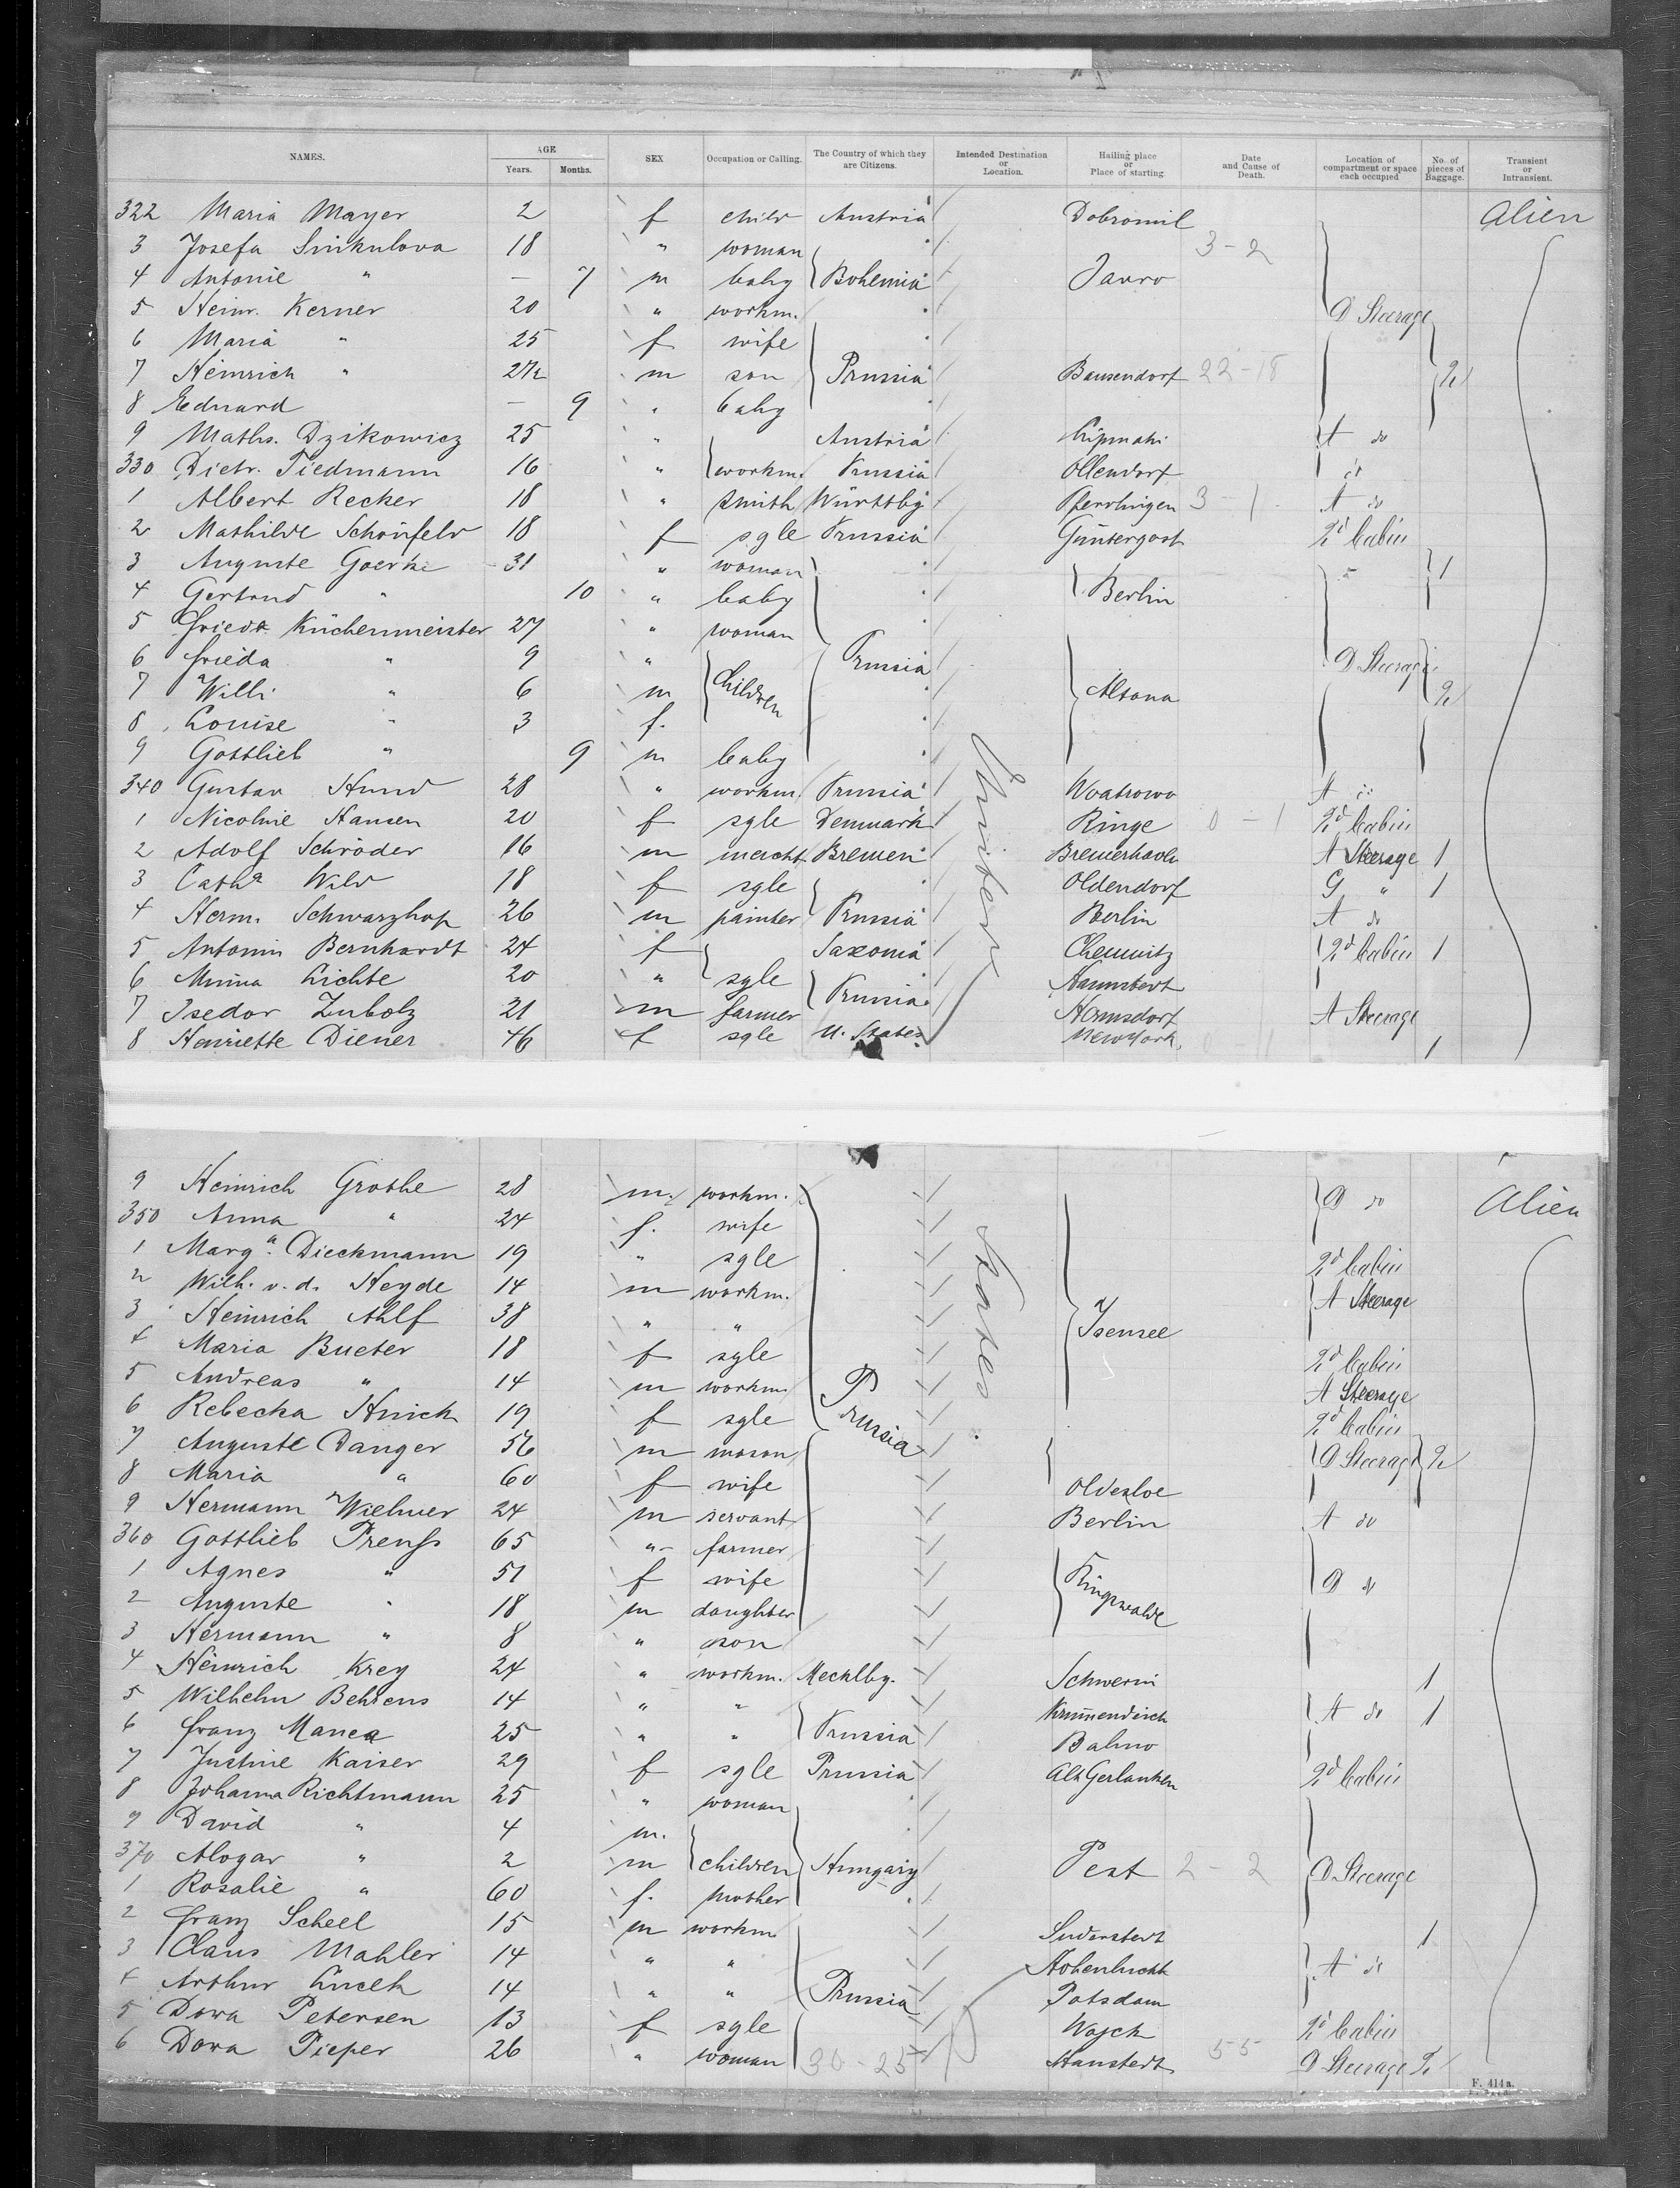 NAMES. AGE Years. Months. SEX Occupation or Calling. The Country of which they are Citizens. Intended Destination or Location. Hailing place or Place of starting Date and Cause of Death. Location of compartment or space each occupied No. of pieces of Baggage. Transient or Intransient.
322 Maria Mayer 2 f child Austria Dobromil Alien
3 Josefa Sinkulova 18 " woman 3-2
4 Antonie " — 7 m baby Bohemia Janro
5 Heinr. Kerner 20 " workm. D Steerage
6 Maria " 25 f wife
7 Heinrich " 2½ m son Prussia Bausendorf 22-18 2
8 Eduard — 9 " baby
9 Maths. Dzikowicz 25 " Austria A do
330 Dietr. Tiedmann 16 " workm. Prussia Ollendorf do
1 Albert Recker 18 " smith Württbg 3-1 A do
2 Mathilde Schönfeld 18 f sgle Prussia Güntergost 2d Cabin
3 Auguste Goerke 31 " woman 1
4 Gertrud " 10 " baby Berlin
5 Friedr. Küchenmeister 27 " woman
6 Frieda " 9 " Prussia D Steerage
7 Willi " 6 m Children Altona 2
8 Louise " 3 f.
9 Gottlieb " 9 m baby
340 Gustav Hund 28 " workm. Prussia Woatrowo A do
1 Nicoline Hansen 20 f sgle Denmark United Ringe 0-1 2d Cabin
2 Adolf Schröder 16 m mercht. Bremen Bremerhavn A Steerage 1
3 Catha Wild 18 f sgle Oldendorf G " 1
4 Herm. Schwarzhop 26 m painter Prussia Berlin A do
5 Antonin Bernhardt 24 f Saxonia Chemnitz 2d Cabin 1
6 Minna Lichte 20 " sgle
7 Isedor Zubolz 21 m farmer Prussia Hermsdorf A Steerage
8 Henriette Diener 46 f sgle U. States New York. 1
9 Heinrich Grothe 28 m. workm. D do Alien
350 Anna " 24 f. wife
1 Marga. Dieckmann 19 " sgle 2d Cabin
2 Wilh. v. d. Heyde 14 m workm. A Steerage
3 Heinrich Ahlf 38 " " States Isensee
4 Maria Bueter 18 f sgle 2d Cabin
5 Andreas " 14 m workm. A Steerage
6 Rebecka Hinck 19 f sgle Prussia 2d Cabin
7 Auguste Danger 56 m mason D Steerage 2
8 Maria " 60 f wife Oldesloe
9 Hermann Wielmer 24 m servant Berlin A do
360 Gottlieb Preuss 65 " farmer
1 Agnes " 51 f wife Ringswalde D do
2 Auguste " 18 m daughter
3 Hermann " 8 " son
4 Heinrich Krey 24 " workm. Mecklbg. Schwerin 1
5 Wilhelm Behrens 14 " " Krummendeich A do 1
6 Franz Manca 25 " " Prussia Balmo
7 Justine Kaiser 29 f sgle Prussia Alt Gerlauken 2d Cabin
8 Johanna Richtmann 25 " woman
9 David " 4 m.
370 Alogar " 2 m children Hungary Pest 2-2 D Steerage
1 Rosalie " 60 f. mother
2 Franz Scheel 15 m workm. Suderstedt 1
3 Claus Mahler 14 " " Hohenlucht A do
4 Arthur Lueck 14 " " Prussia Potsdam
5 Dora Petersen 13 f sgle 2d Cabin
6 Dora Pieper 26 " woman 30-25 Hanstedt 55 D Steerage 2
F. 414a.